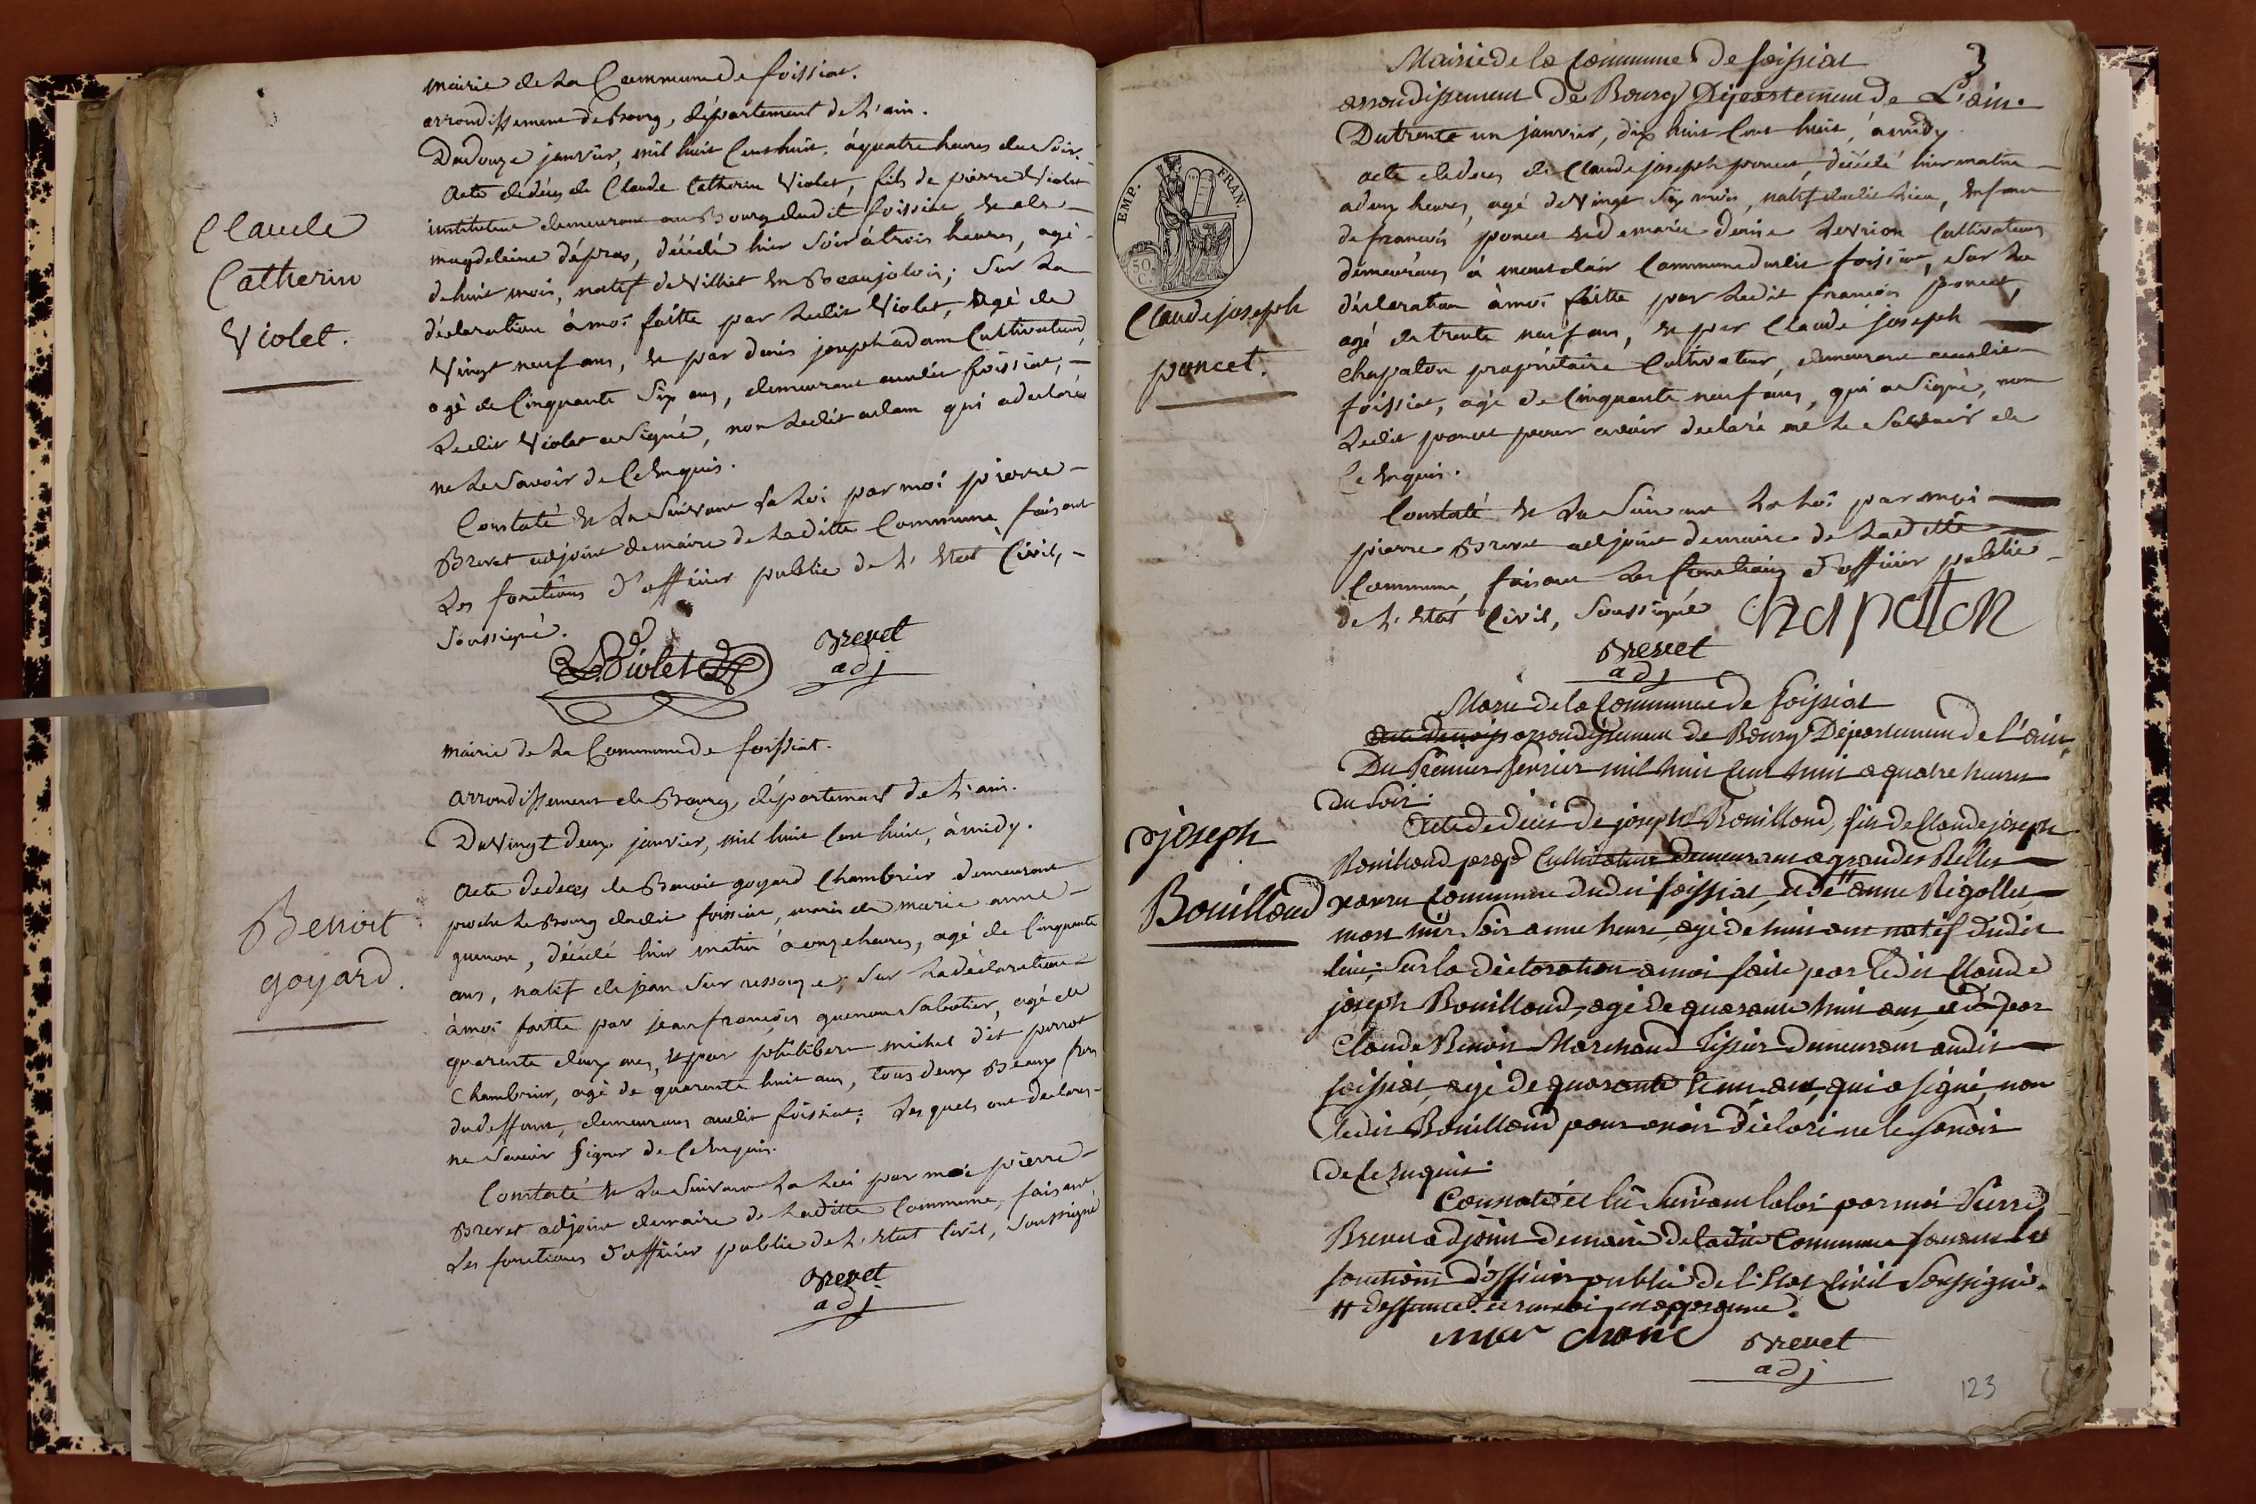 mairie de La Commune de foissiat.
arrondissement de Bourg, département de L'ain.
Du douze janvier, mil huit Cent huit, à quatre heures du Soir.
Acte de décès de Claude Catherin Violet, fils de pierre Violet
instituteur demeurant au Bourg dudit foissiat, et de
magdeleine dépras, décédé hier Soir à trois heures, agé
de huit mois, natif de Villiet en Beaujolois; Sur La
déclaration à moi faitte par Ledit Violet, agé de
Vingt neuf ans, et par denis joseph adam Cultivateur,
agé de Cinquante Six ans, demeurant audit foissiat,
Ledit Violet a Signé, non Ledit adam qui a declaré
ne Le Savoir de Ce Enquis.
Constaté et Lu Suivant La Loi par moi pierre
Brevet adjoint de maire de Laditte Commune, faisant
Les fonctions d'officier public de L'Etat Civil,
Soussigné.
Violet Brevet
adj
Claude
Catherin
Violet.
mairie de La Commune de foissiat.
arrondissement de Bourg, département de L'ain.
Du Vingt deux janvier, mil huit Cent huit, à midy.
Acte de deces de Benoit goyard Chambrier demeurant
proche Le Bourg dudit foissiat, mari de marie anne
guenon, décédé hier matin à onze heures, agé de Cinquante
ans, natif de jean Sur ressouze; Sur La déclaration
à moi faitte par jean françois guenon Sabotier, agé de
quarante deux ans, et par philibert michel dit perrot
Chambrier, agé de quarante huit ans, tous deux Beaux freres
du deffunt, demeurans audit foissiat; Lesquels ont declaré
ne Savoir Signer de Ce Enquis.
Constaté et Lu Suivant La Loi par moi pierre
Brevet adjoint de maire de Laditte Commune, faisant
Les fonctions d'officier public de L'Etat Civil, Soussigné
Brevet
adj
Benoit
goyard.
3
Mairie de la Commune de foissiat
arrondissement de Bourg Département de L'ain.
Du trente un janvier, dix huit Cent huit, à midy
acte de deces de Claude joseph poncet, décédé hier matin
a deux heures, agé de Vingt Six mois, natif dudit Lieu, enfant
de francois poncet et de marie denise Cultivateurs
demeurans à montclair Commune dudit foissiat, Sur La
déclaration à moi faitte par Ledit francois poncet,
agé de trente neuf ans, et par Claude joseph
chapaton propriétaire Cultivateur, demeurant audit
foissiat, agé de Cinquante neuf ans, qui a Signé, non
Ledit poncet pour avoir declaré ne Le Savoir de
Ce Enquis.
Constaté et Lu Suivant La Loi par moi
pierre Brevet adjoint de maire de Laditte
Commune, faisant Les fonctions d'officier public
de L'Etat Civil, Soussigné chapaton
Brevet
adj
EMP. FRAN.
50 C.
Claude joseph
poncet.
Marie de la Commune de foissiat
arrondissement de Bourg Département de l'ain,
Du Premier fevrier mil huit Cent huit a quatre heures
du soir.
Acte de décès de joseph Bouilloud, fils de Claude joseph
Bouilloud prop.re Cultivateur demeurant a grandes Belles
Commune dudit foissiat, et d'# anne Rigollet,
mort hier Soir a une heure, agé de huit ans natif dudit
lieu; Sur la déclaration a moi faite par ledit Claude
joseph Bouilloud, agé de quarante huit ans, et par
Claude Benoit Marchand demeurant audit
foissiat, agé de quarante ans, qui a signé, non
ledit Bouilloud pour avoir déclaré ne le savoir
de ce enquis.
Constaté et lu suivant la loi par moi Pierre
Brevet adjoint de maire de ladite Commune faisant les
fonctions d'officier public de l'Etat Civil Soussigné.
# deffunte. ce renvoi est approuvé.
Brevet
adj
joseph
Bouilloud
123